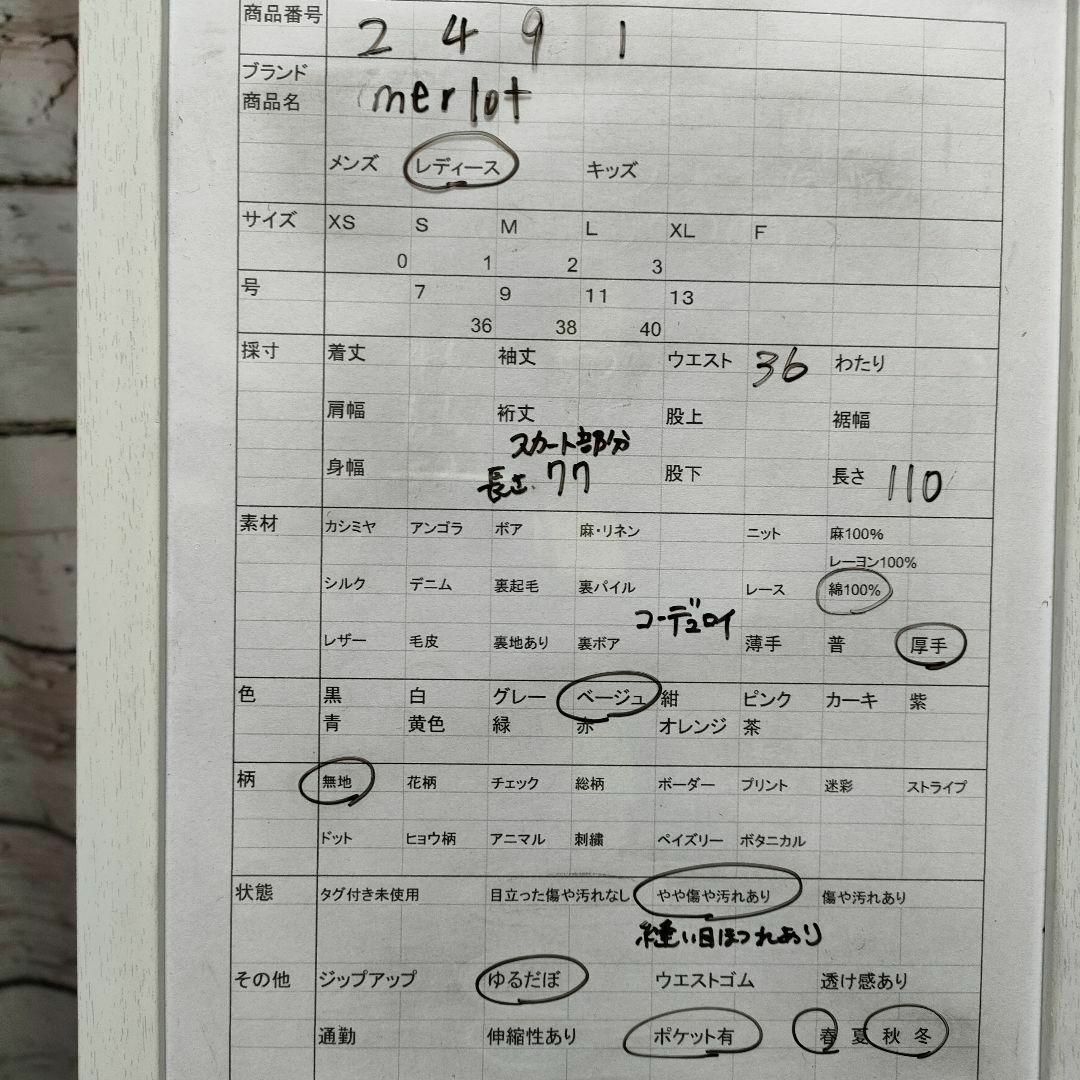 商品番号 2 4 9 1
ブランド
商品名 merlot
メンズ レディース キッズ
サイズ XS S M L XL F
0 1 2 3
号 7 9 11 13
36 38 40
採寸 着丈 袖丈 ウエスト 36 わたり
肩幅 裄丈 股上 裾幅
スカート部分
身幅 長さ 77 股下 長さ 110
素材 カシミヤ アンゴラ ボア 麻・リネン ニット 麻100%
レーヨン100%
シルク デニム 裏起毛 裏パイル レース 綿100%
コーデュロイ
レザー 毛皮 裏地あり 裏ボア 薄手 普 厚手
色 黒 白 グレー ベージュ 紺 ピンク カーキ 紫
青 黄色 緑 赤 オレンジ 茶
柄 無地 花柄 チェック 総柄 ボーダー プリント 迷彩 ストライプ
ドット ヒョウ柄 アニマル 刺繍 ペイズリー ボタニカル
状態 タグ付き未使用 目立った傷や汚れなし やや傷や汚れあり 傷や汚れあり
縫い目ほつれあり
その他 ジップアップ ゆるだぼ ウエストゴム 透け感あり
通勤 伸縮性あり ポケット有 春 夏 秋 冬